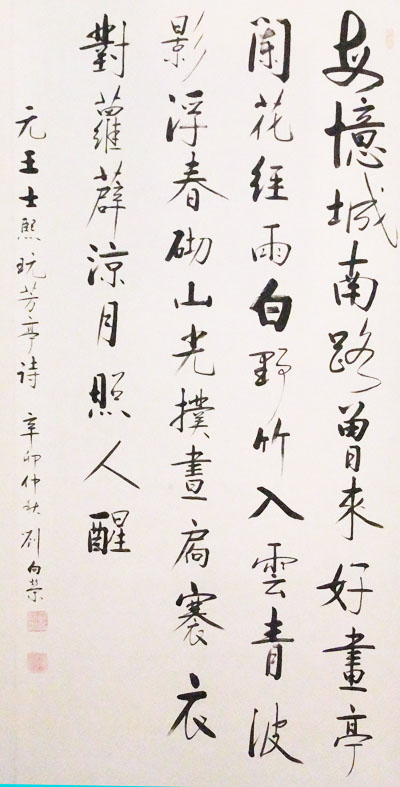 每憶城南路曾來好畫亭
闌花経雨白野竹入雲青波
影浮春砌山光撲晝扃褰衣
對蘿薜涼月照人醒
元王士熙玩芳亭诗 辛卯仲秋 刘向荣